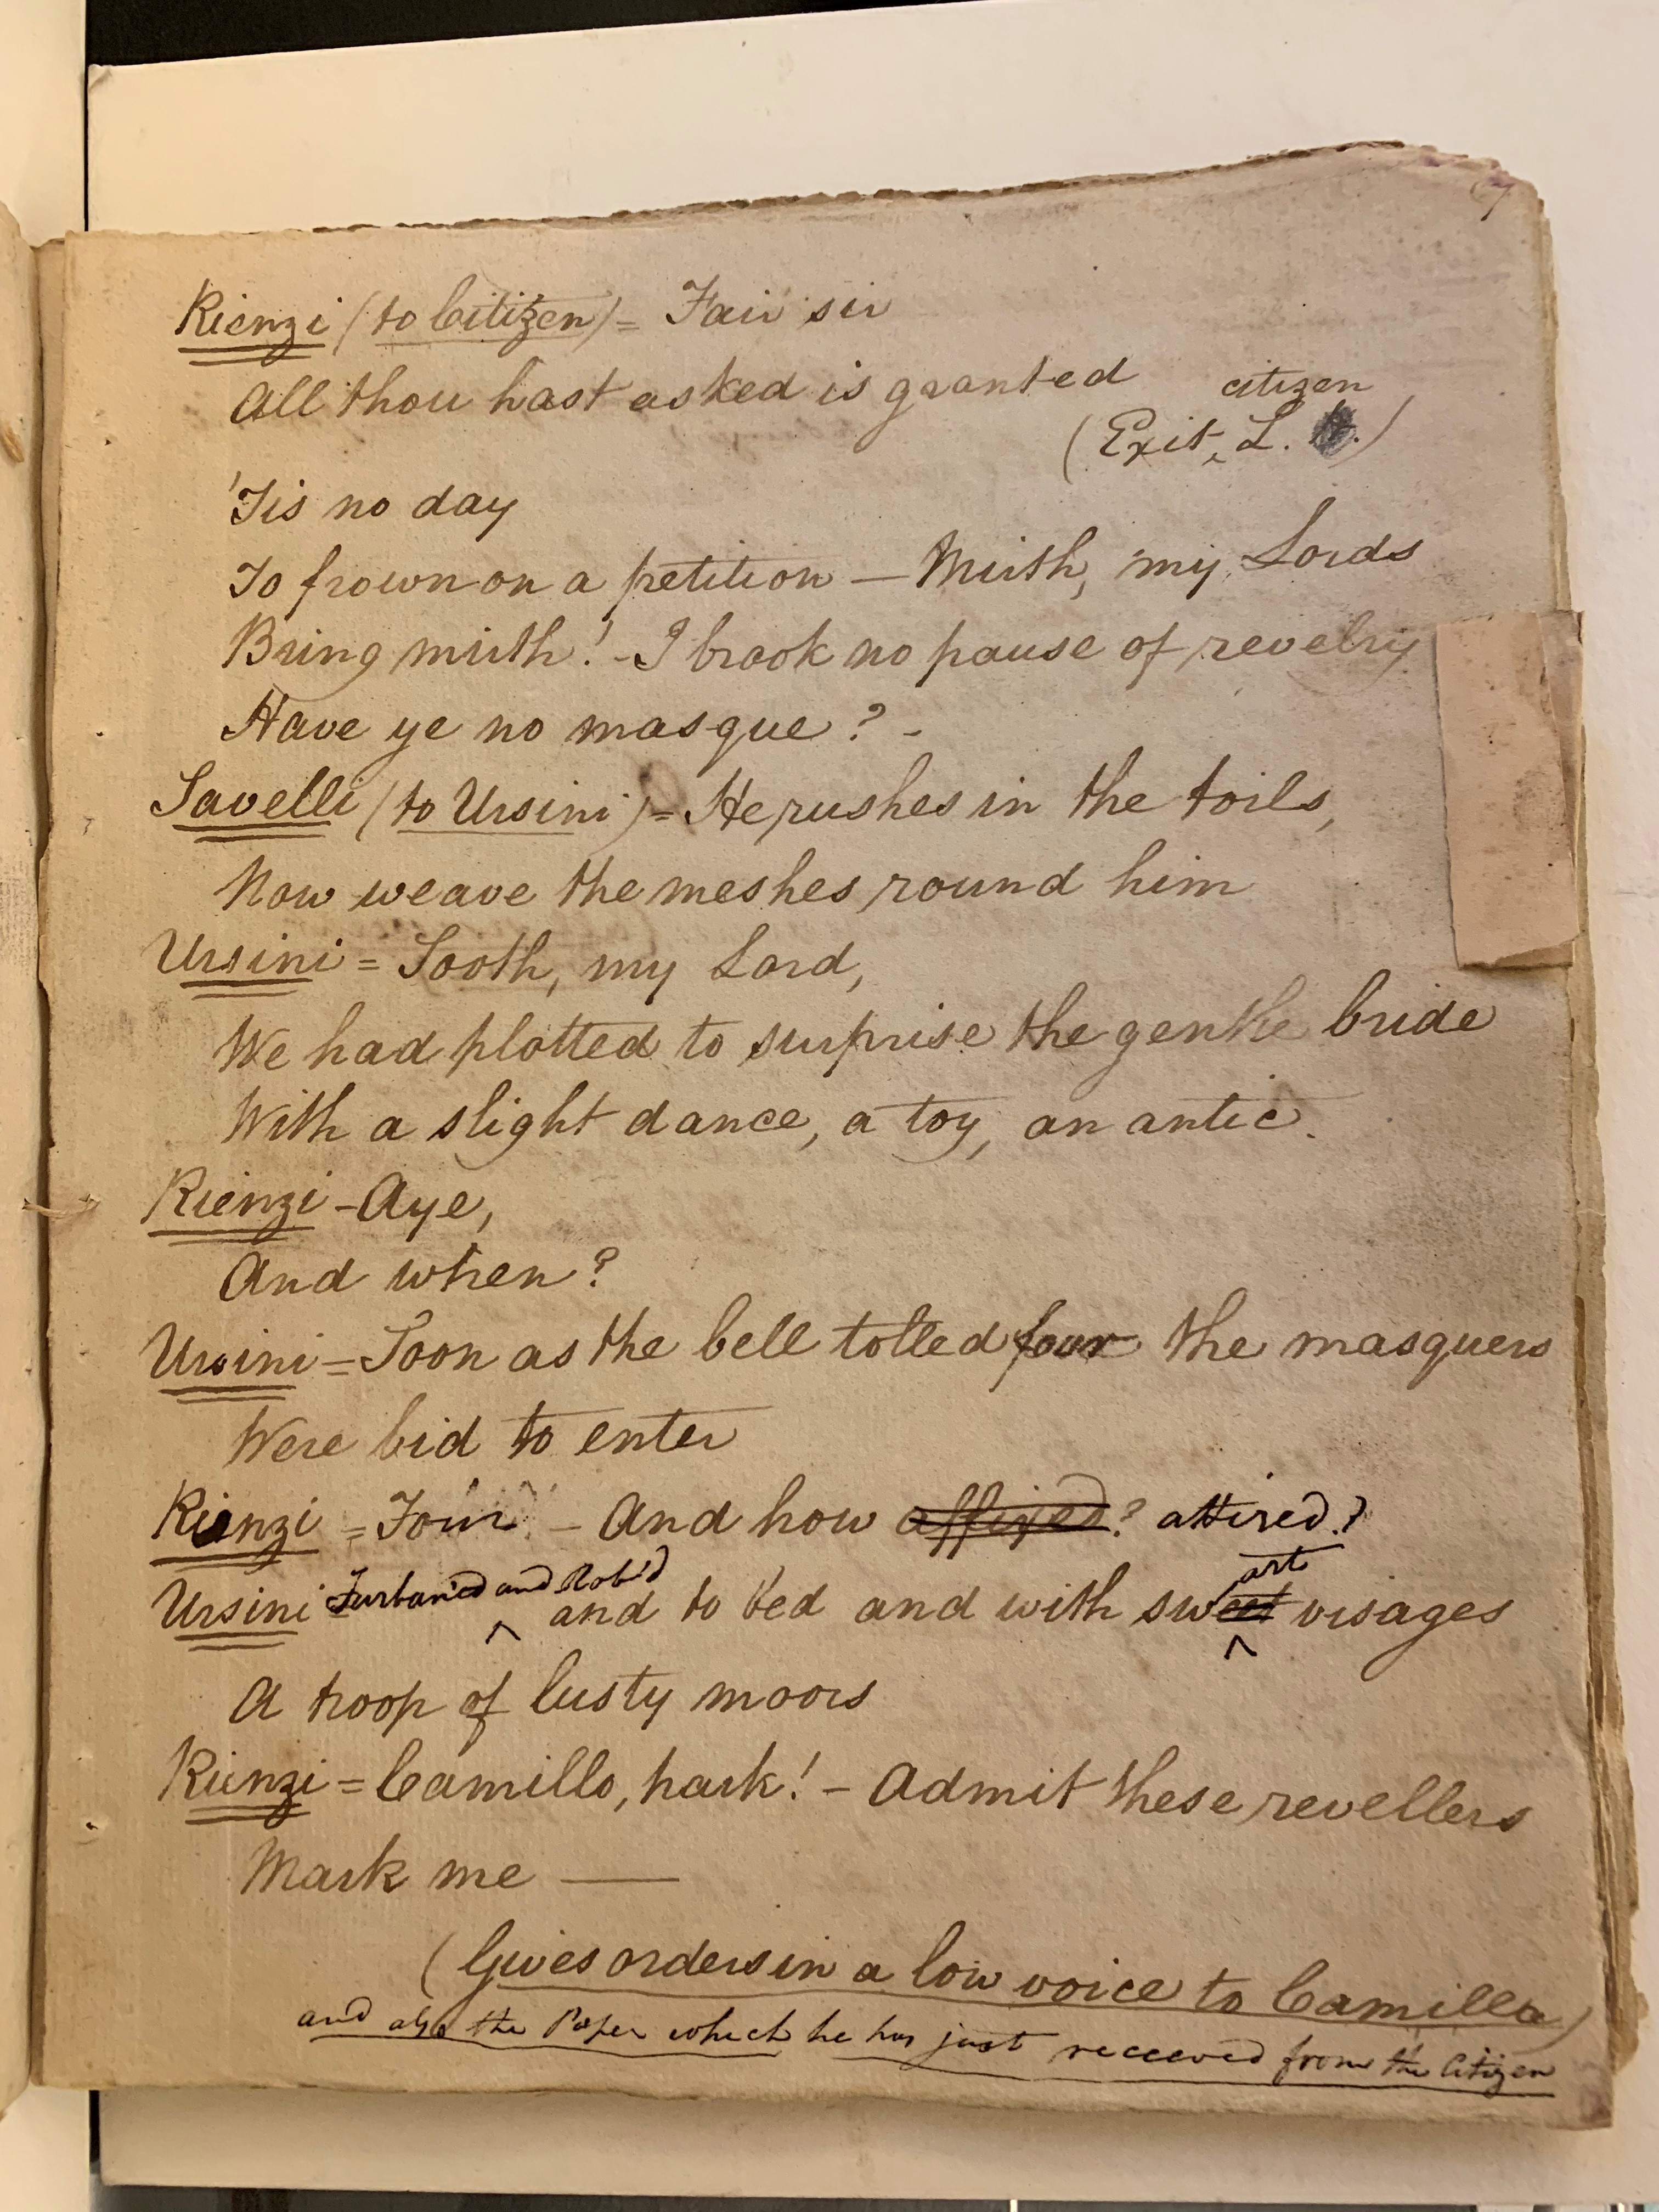 Rienzi (to Citizen) = Fair sir
All thou hast asked is granted
citizen
(Exit, L. .)
'Tis no day
To frown on a petition — Mirth, my Lords
Bring mirth! - I brook no pause of revelry
Have ye no masque? -
Savelli (to Ursini) = He rushes in the toils,
Now weave the meshes round him
Ursini = Sooth, my Lord,
We had plotted to surprise the gentle bride
With a slight dance, a toy, an antic.
Rienzi - Aye,
And when?
Ursini = Soon as the bell tolled four the masquers
Were bid to enter
Rienzi = Four - And how affixed? attired?
Turbaned and Rob'd
art
Ursini and to bed and with sweet visages
A troop of lusty moors
Rienzi = Camillo, hark! - Admit these revellers
Mark me —
(Gives orders in a low voice to Camillo)
and also the Paper which he has just received from the Citizen